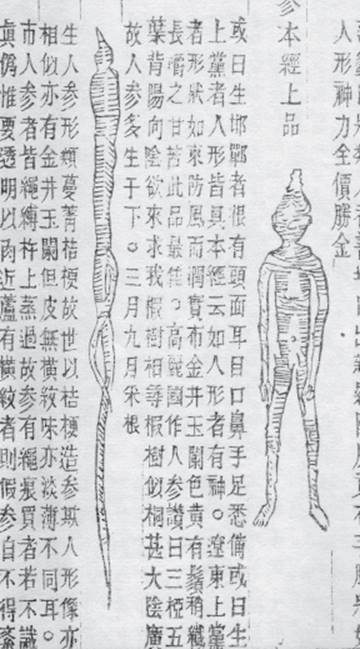 人形神力全價勝金
參本經上品
或曰生邯鄲者根有頭面耳目口鼻手足悉備或曰生
上黨者人形皆具本經云如人形者有神。遼東上黨
者形狀如來防風而潤實布金井玉闌色黃有鬚稍纖
長嚼之甘苦此品最佳。高麗國作人參讚曰三椏五
葉背陽向陰欲來求我椵樹相尋椵樹似桐甚大陰廣
故人參多生于下。三月九月采根
生人參形類蔓菁桔梗故世以桔梗造參斯人形像亦
相似亦有金井玉闌但皮無橫紋味亦淡薄不同耳。
市人參者皆繩縛杵上蒸過故參有繩痕買者若不識
真偽惟要透明以肉近蘆有橫紋者則假參自不得紊